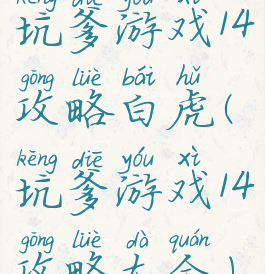 kēng diē yóu xì
坑爹游戏14
gōng lüè bái hǔ
攻略白虎(
kēng diē yóu xì
坑爹游戏14
gōng lüè dà quán
攻略大全)